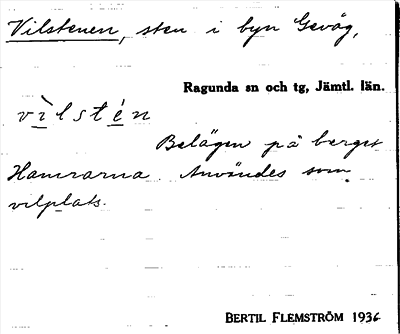 Vilstenen, sten i byn Gevåg,
Ragunda sn och tg, Jämtl. län.
vìlstén
Belägen på berget
Hamrarna. Användes som
vilplats.
BERTIL FLEMSTRÖM 1936